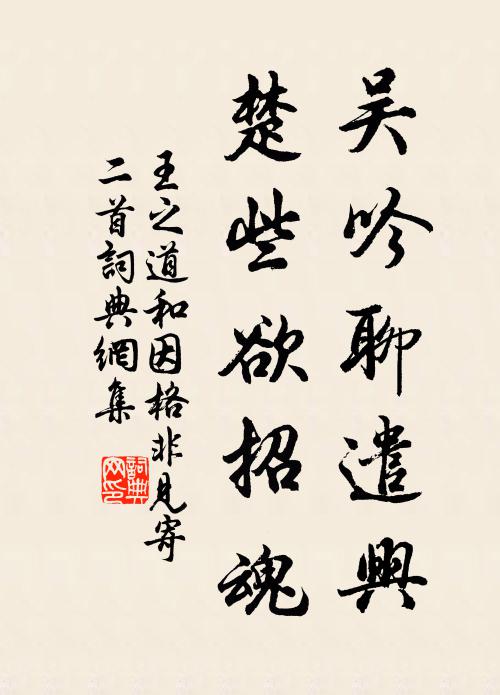 吴吟聊遣興
楚些欲招魂
王之道和因格非見寄
二首詞典網集
詞典
网印